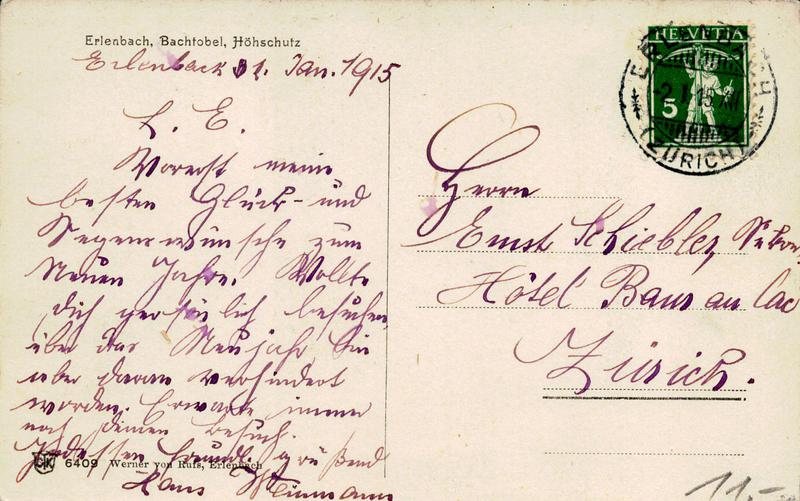 Erlenbach, Bachtobel, Höhschutz
Erlenbach 1. Jan. 1915
L. E.
Vorerst meine
besten Glück- und
Segenswünsche zum
Neuen Jahre. Wollte
dich persönlich besuchen,
über das Neujahr, bin
aber daran verhindert
worden. Erwarte immer
noch deinen Besuch.
Indessen freundl. grüßend
Hans
6409 Werner von Rufs, Erlenbach
HELVETIA
5
ERLENBACH
(ZÜRICH)
Herrn
Ernst Schiebler,
Hôtel Baur au Lac
Zürich.
11.-